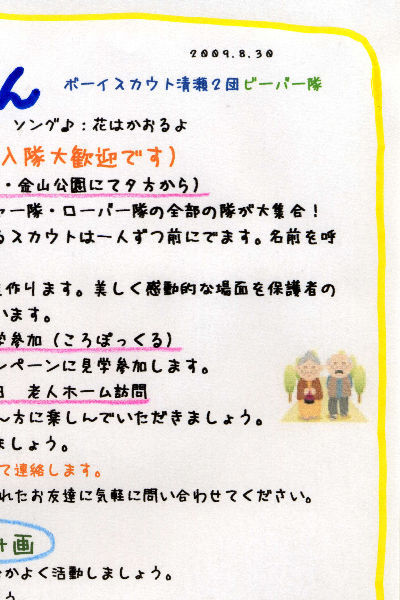 2009.8.30
ん
ボーイスカウト清瀬2団ビーバー隊
ソング♪：花はかおるよ
入隊大歓迎です）
・金山公園にて夕方から）
ャー隊・ローバー隊の全部の隊が大集合！
るスカウトは一人ずつ前にでます。名前を呼
作ります。美しく感動的な場面を保護者の
います。
学参加（ころぽっくる）
ンペーンに見学参加します。
日　老人ホーム訪問
〜方に楽しんでいただきましょう。
ましょう。
て連絡します。
れたお友達に気軽に問い合わせてください。
計画
かよく活動しましょう。
う。